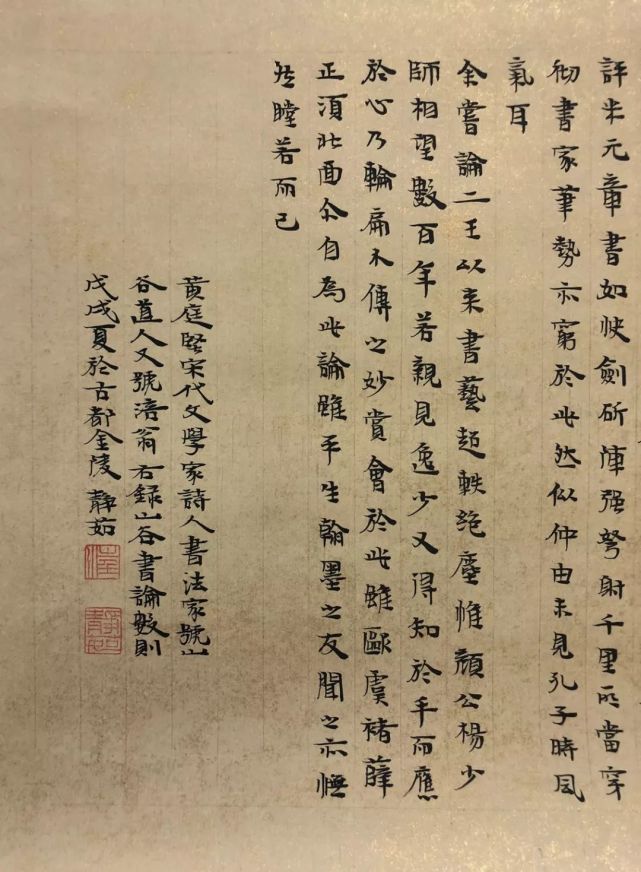 評米元章書如快劍斫陣强弩射千里所當穿
彻書家筆勢亦窮於此然似仲由未見孔子時風
氣耳
余嘗論二王以来書藝超軼绝塵惟顔公楊少
師相望數百年若親見逸少又得知於手而應
於心乃輪扁不傳之妙賞會於此雖歐虞褚薛
正須北面尒自為此論雖平生翰墨之友聞之亦憮
然瞠若而已
黄庭堅宋代文學家詩人書法家號山
谷道人又號涪翁右録山谷書論數則
戊戌夏於古都金陵靜茹
崔
靜茹